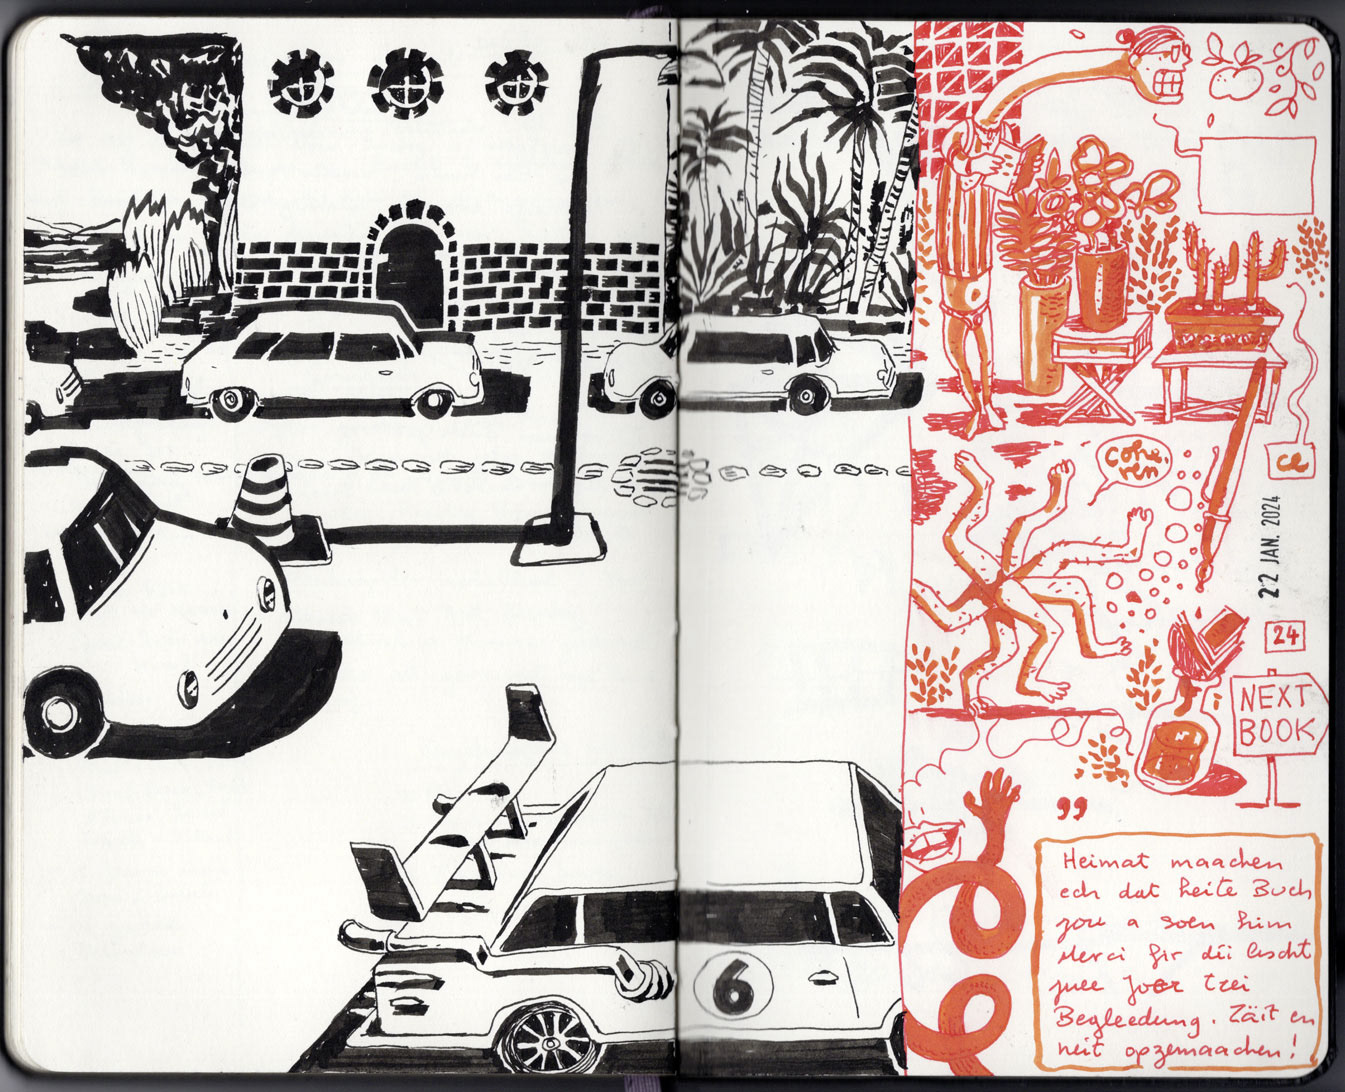 cohé,
ren
ce
22 JAN. 2024
24
NEXT
BOOK
"
Heimat maachen
ech dat heite Buch
zou a soen him
Merci fir déi lescht
puer Joer trei
Begleedung. Zäit en
neit opzemaachen!
6